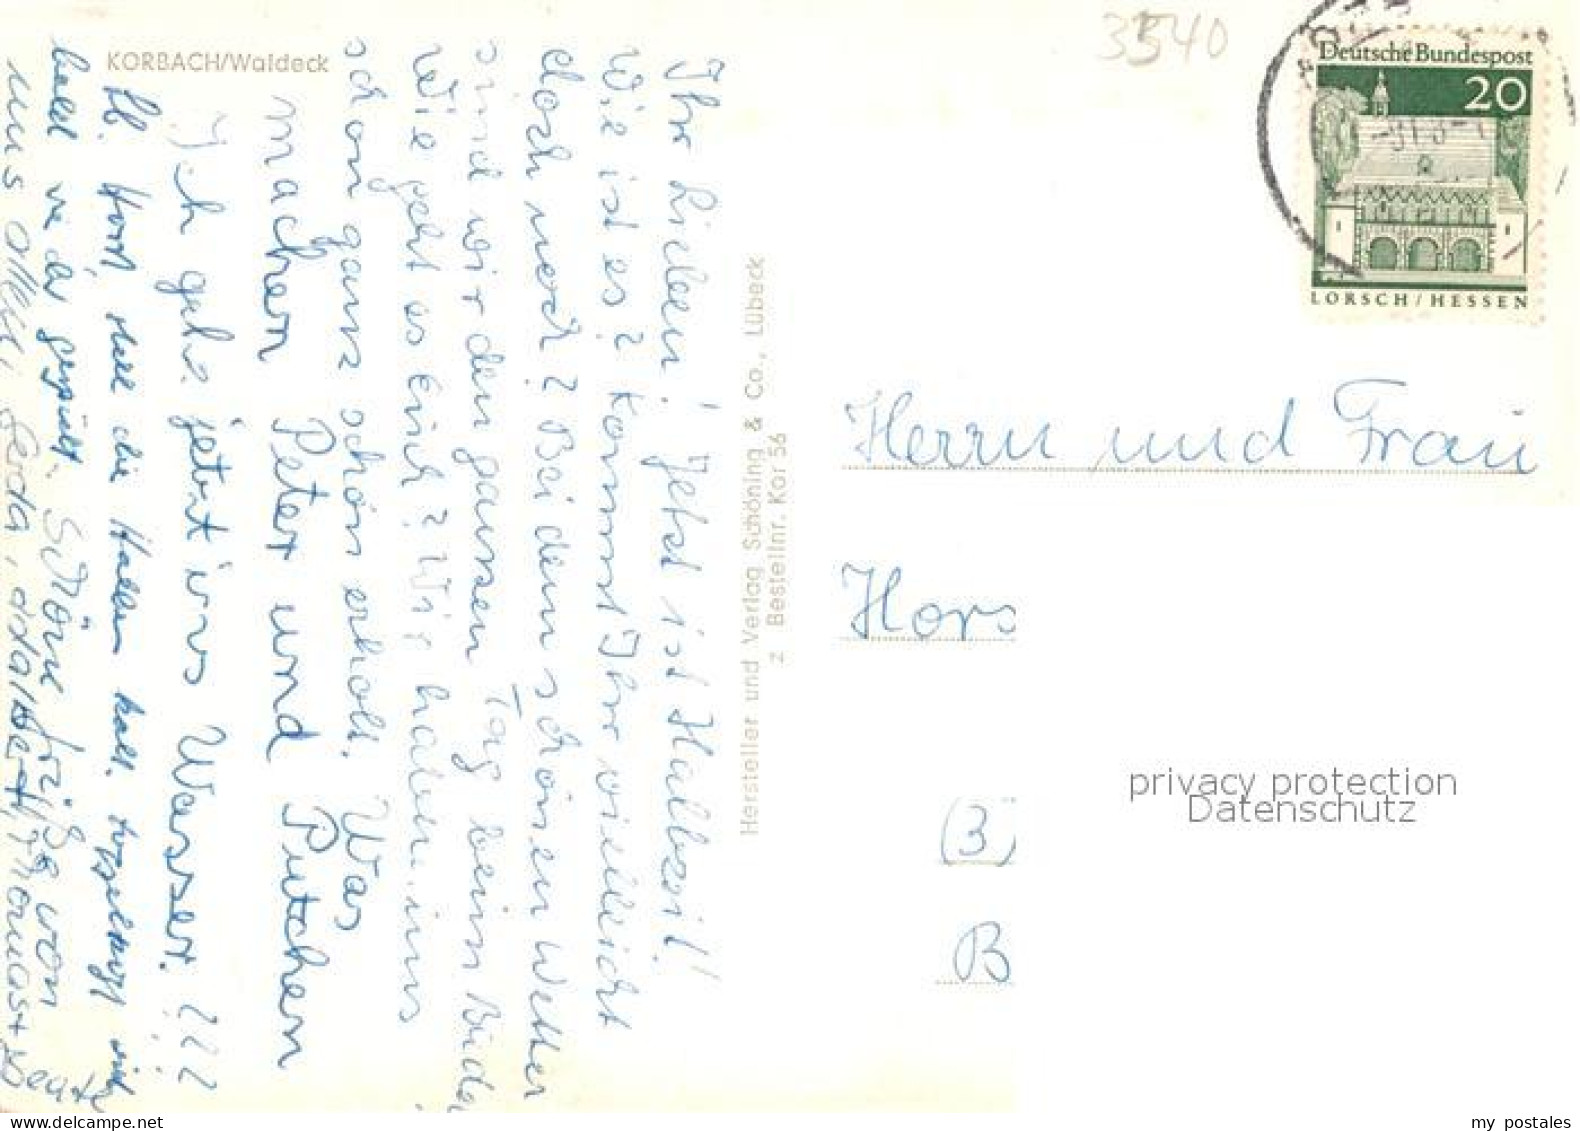 KORBACH/Waldeck
Ihr Lieben! Jetzt ist Halbzeit!
Wie ist es? Kommt Ihr vielleicht
doch noch? Bei dem schönen Wetter
sind wir den ganzen Tag beim Baden
Wie geht es Euch? Wir haben uns
schon ganz schön erholt. Was
machen Peter und Putchen
Ich gehe jetzt ins Wasser.
lb. Horst, die Hallen kalt.
bald wieder gespielt. Schöne Grüße von
uns allen, Gerda, Thomas +
Hersteller und Verlag Schöning & Co., Lübeck
Z Bestellnr. Kor 56
3540
Deutsche Bundespost
20
LORSCH/HESSEN
Herrn und Frau
Hors
(3)
B
privacy protection
Datenschutz
delcampe.net
my_postales